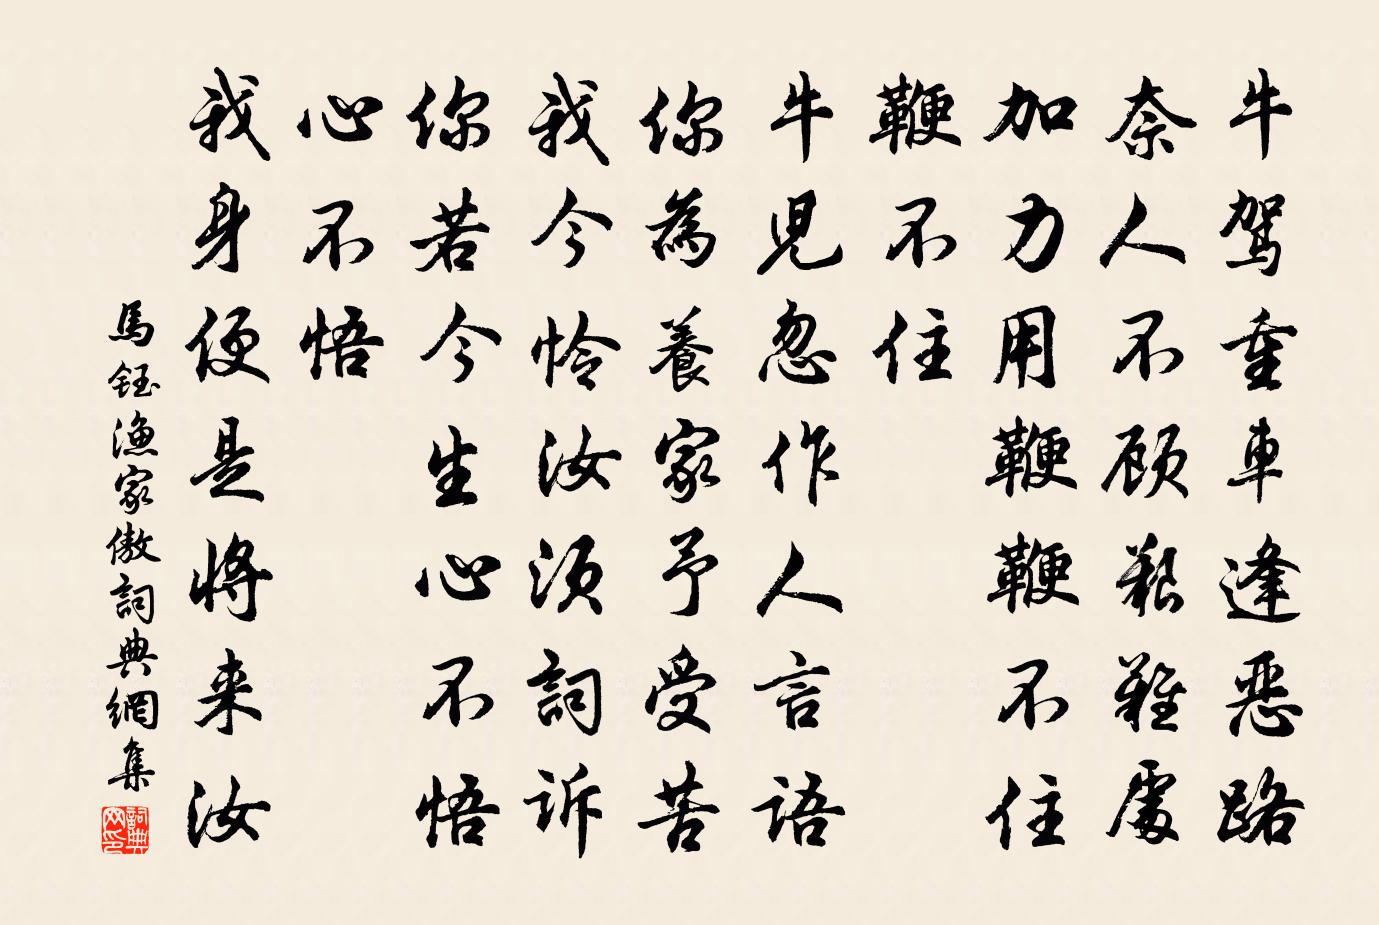 牛駕重車逢惡路
奈人不顾艱難處
加力用鞭鞭不住
鞭不住
牛児忽作人言語
你為養家予受苦
我今怜汝须詞訴
你若今生心不悟
心不悟
我身便是将来汝
馬鈺漁家傲詞典網集
詞典网印